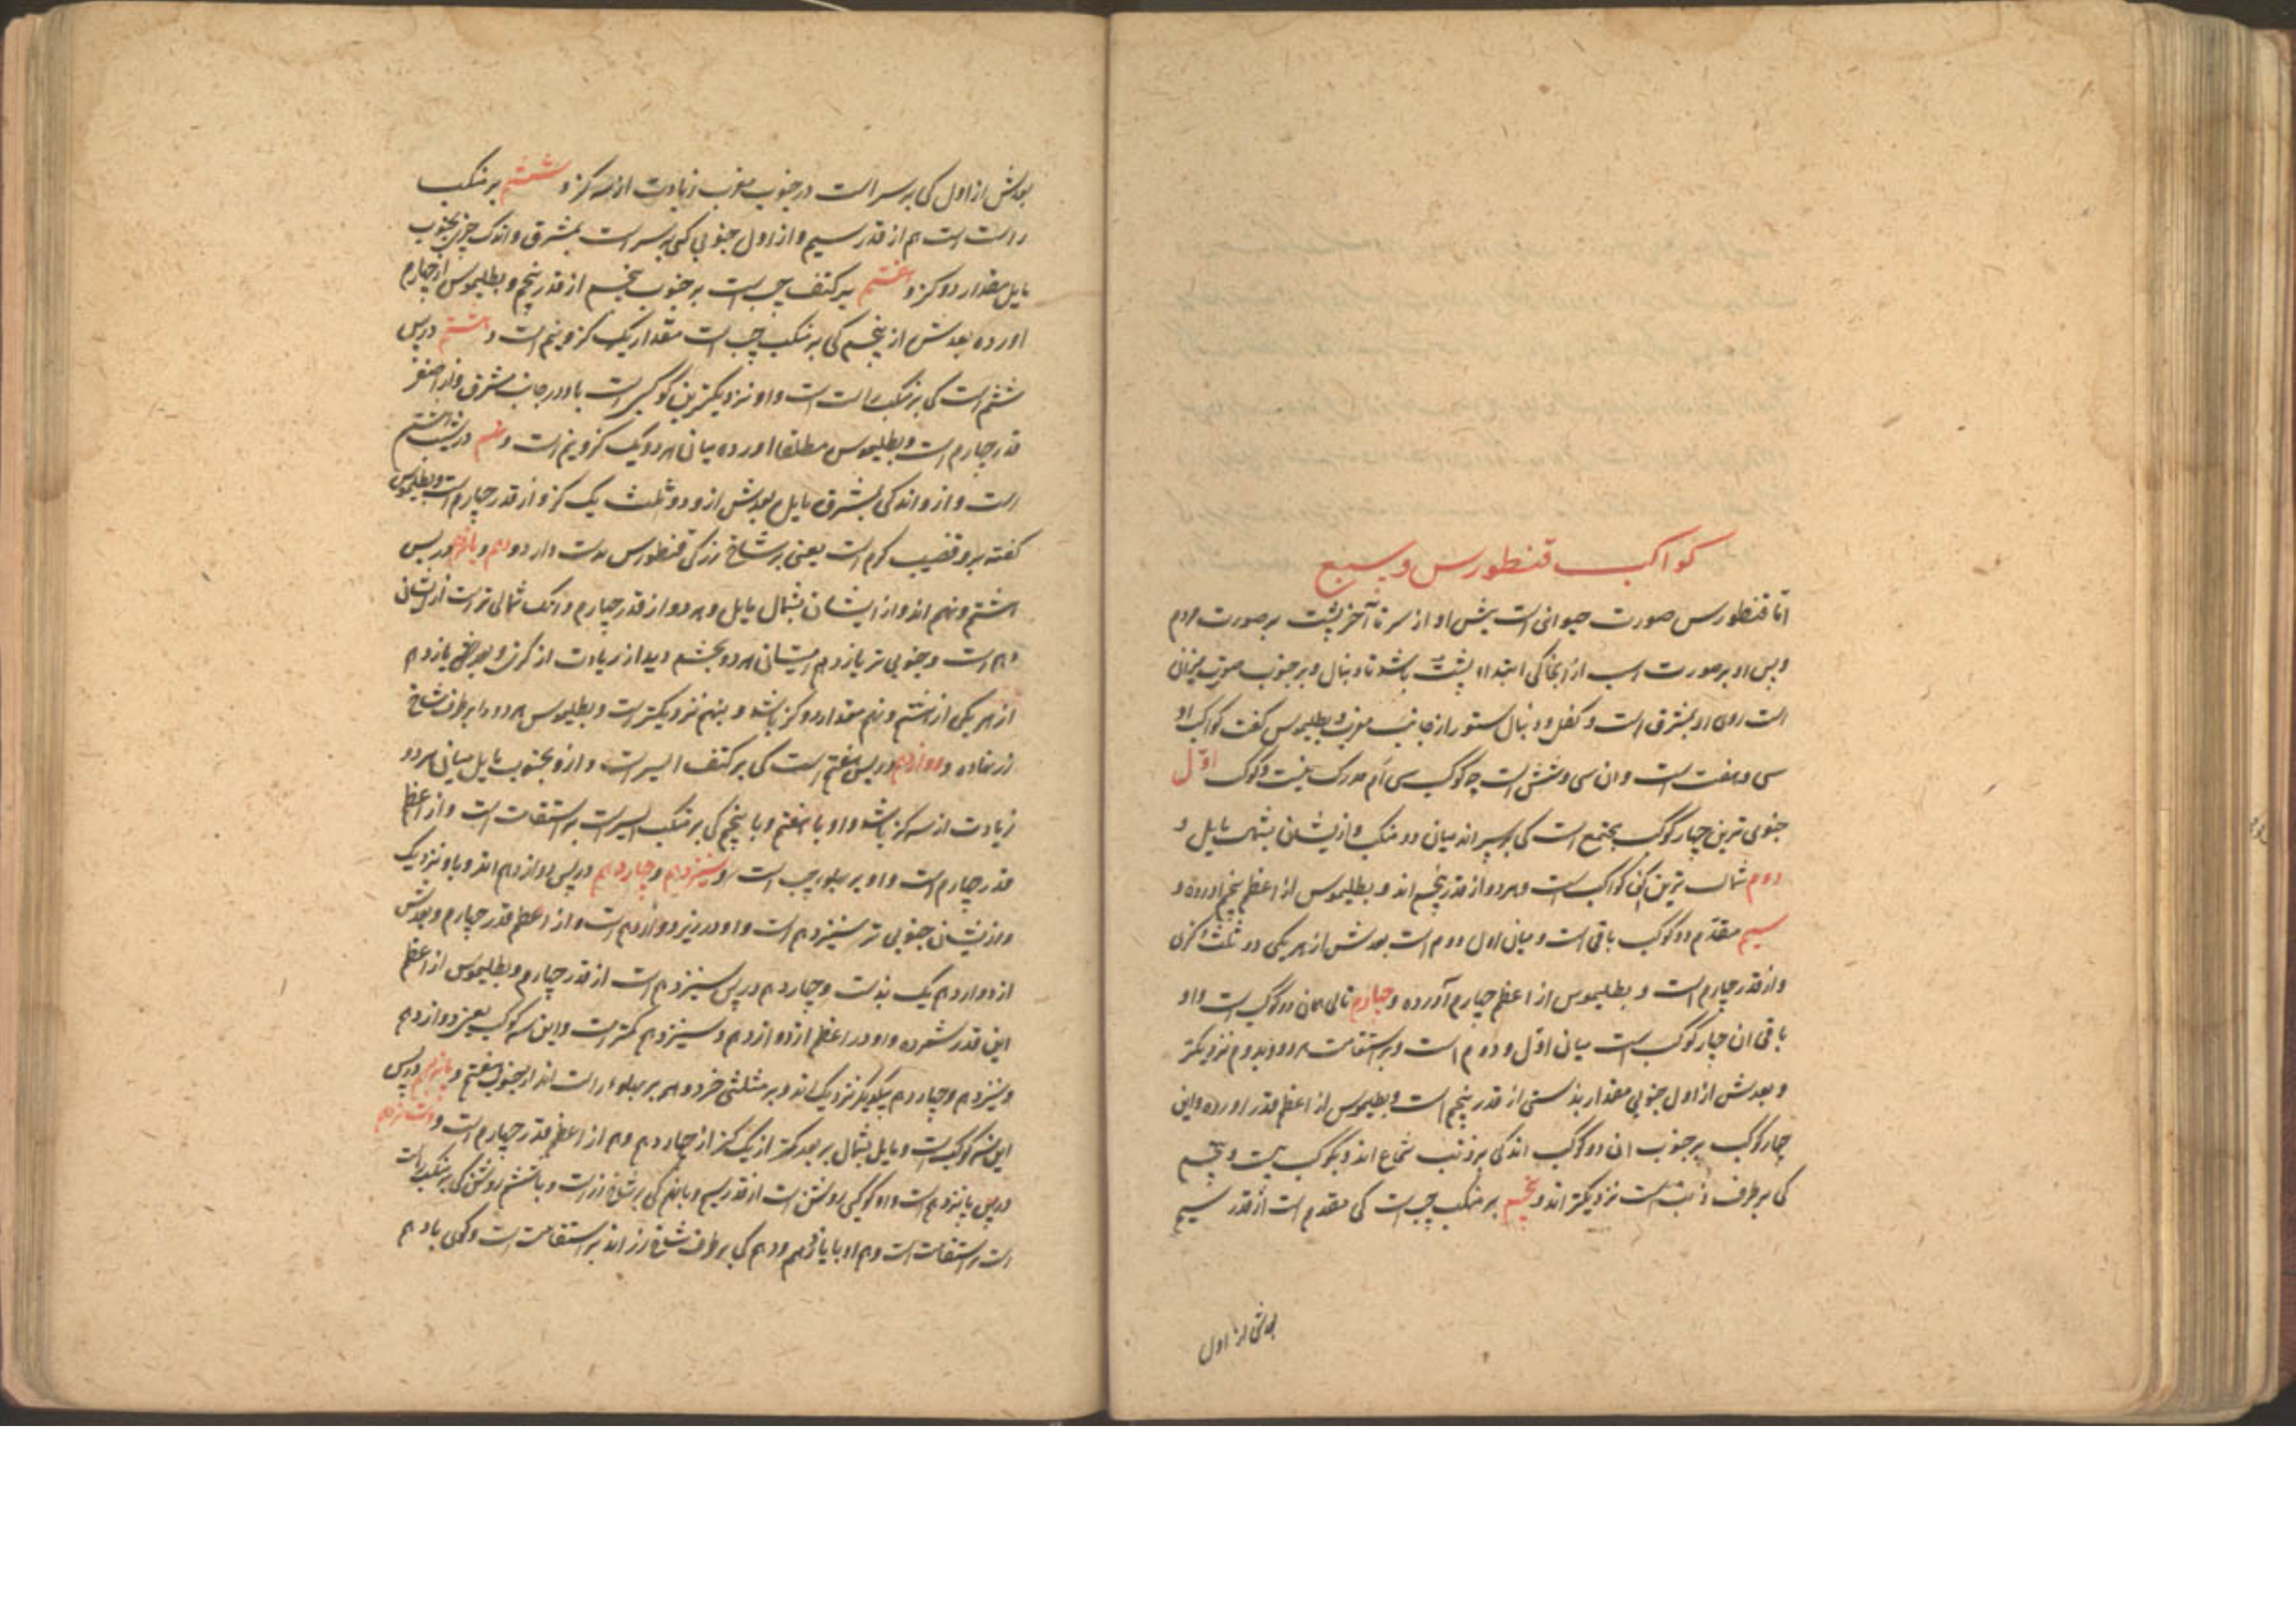 کواکب قنطورس و سبع
اما قنطورس صورت حیوانی است پیش او از سر تا آخر پشت بر صورت مردم
و پس او بر صورت اسب از آنجا کی ابتداء پشت باشد تا دنبال و بر جنوب صورت میزان
است روی او بمشرق است و کفل و دنبال ستور از جانب مغرب و بطلیموس گفت کواکب او
سی و هفت است و ان سی و شش است چه کوکب سی ام مدرک نیست و کوکب اول
جنوبی ترین چهار کوکب مجتمع است کی بر سر اند میان دو منکب و ازیشان بشمال مایل و
دوم شمالی ترین این کواکب است و هر دو از قدر پنجم اند و بطلیموس از اعظم پنجم اورده و
سیم مقدم دو کوکب باقی است و میان اول و دوم است بعدش از هر یکی دو ثلث گزی
و از قدر چهارم است و بطلیموس از اعظم چهارم آورده و چهارم تالی همان دو کوکب است و او
باقی ان چهار کوکب است میان اول و دوم است و بر استقامت هر دو و بدوم نزدیکتر
و بعدش از اول جنوبی مقدار بذستی از قدر پنجم است و بطلیموس از اعظم قدر اورده و این
چهار کوکب بر جنوب ان دو کوکب اند کی بر ذنب شجاع اند و بکوکب بیست و پنجم
کی بر طرف ذنبست نزدیکتر اند و پنجم بر منکب چپ است کی مقدم است از قدر سیم
بعدش از اول
بعدش از اول کی بر سر است در جنوب مغرب زیادت از سه گز و ششم بر منکب
راست است هم از قدر سیم و از اول جنوبی کی بر سر است بمشرق و اندک چیزی بجنوب
مایل مقدار دو گز و هفتم بر کتف چپ است بر جنوب پنجم از قدر پنجم و بطلیموس از چهارم
اورده بعدش از پنجم کی بر منکب چپ است مقدار یک گز و نیم است و هشتم در پس
ششم است کی بر منکب راست است و او نزدیکترین کوکبی است باو در جانب مشرق و از اصغر
قدر چهارم است و بطلیموس مطلقا اورده میان هر دو یک گز و نیم است و نهم در پس هشتم
است و از و اندکی بمشرق مایل بعدش از و دو ثلث یک گز و از قدر چهارم است و بطلیموس
گفته بر و قضیب کرم است یعنی بر شاخ رز کی قنطورس بدست دارد و دهم و یازدهم در پس
هشتم و نهم اند و از ایشان بشمال مایل و هر دو از قدر چهارم و انک شمالی تر است ازیشان
دهم است و جنوبی تر یازدهم میان هر دو بچشم دیدار زیادت از گزی و بعد یازدهم
از هر یکی از هشتم و نهم مقدار دو گز باشد و بنهم نزدیکتر است و بطلیموس هر دو را بر طرف شاخ
رز نهاده و دوازدهم در پس هفتم است کی بر کتف ایسر است و از و بجنوب مایل میان هر دو
زیادت از سه گز باشد و او با هفتم و با پنجم کی بر منکب ایسر است بر استقامت است و از اعظم
قدر چهارم است و او بر پهلوء چپ است و سیزدهم و چهاردهم در پس دوازدهم اند و باو نزدیک
و ازیشان جنوبی تر سیزدهم است و او در زیر دوازدهم است و از اعظم قدر چهارم و بعدش
از دوازدهم یک بذست و چهاردهم در پس سیزدهم است از قدر چهارم و بطلیموس از اعظم
این قدر شمرده و او در اعظم از دوازدهم و سیزدهم کمتر است و این سه کوکب یعنی دوازدهم
و سیزدهم و چهاردهم بیکدیگر نزدیک اند و بر مثلثی خرد و هم بر پهلوء راست اند از جنوب هفتم و پانزدهم در پس
این سه کوکب است و مایل بشمال بر بعد کمتر از یک گز از چهاردهم و هم از اعظم قدر چهارم است و شانزدهم
در پس پانزدهم است و او کوکبی روشن است از قدر سیم و با نهم کی بر شاخ رز است و با ششم روشن کی بر منکب راست
است بر استقامت است و هم او با یازدهم و دهم کی بر طرف شاخ رز اند بر استقامت است و کی با دهم